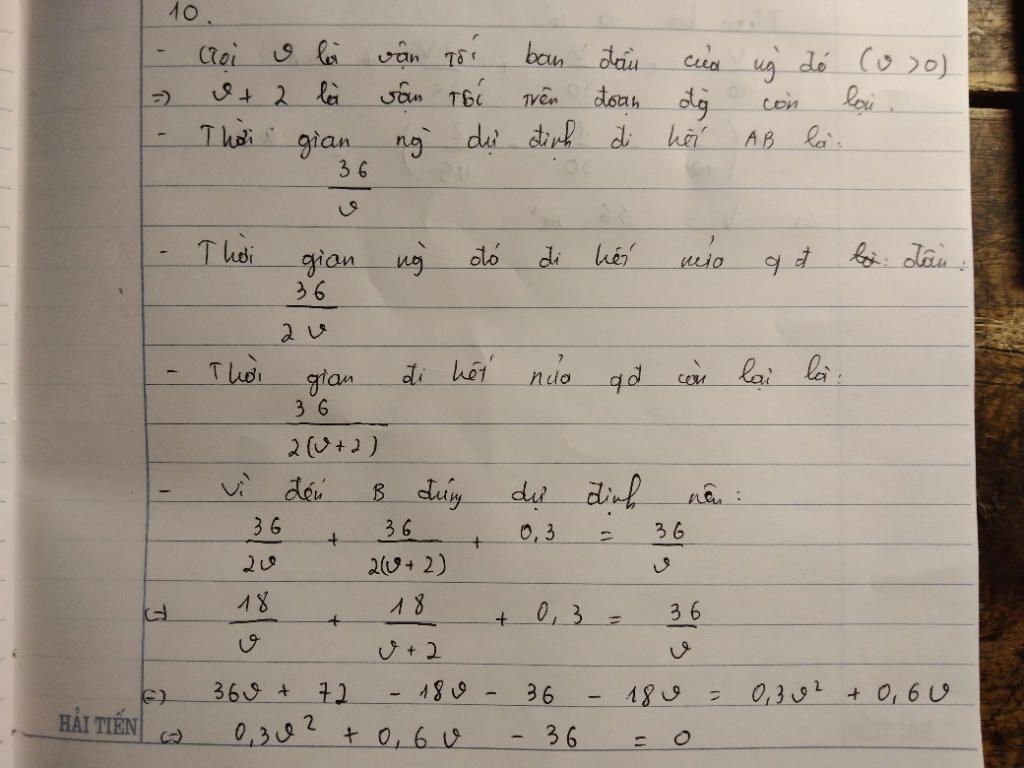 10.
- Gọi v là vận tốc ban đầu của ng` đó (v > 0)
=> v + 2 là vận tốc trên đoạn đg` còn lại.
- Thời gian ng` dự định đi hết AB là:
36/v
- Thời gian ng` đó đi hết nửa qđ đầu:
36/2v
- Thời gian đi hết nửa qđ còn lại là:
36/2(v+2)
- Vì đến B đúng dự định nên:
36/2v + 36/2(v+2) + 0,3 = 36/v
<=> 18/v + 18/v+2 + 0,3 = 36/v
<=> 36v + 72 - 18v - 36 - 18v = 0,3v² + 0,6v
<=> 0,3v² + 0,6v - 36 = 0
HẢI TIẾN